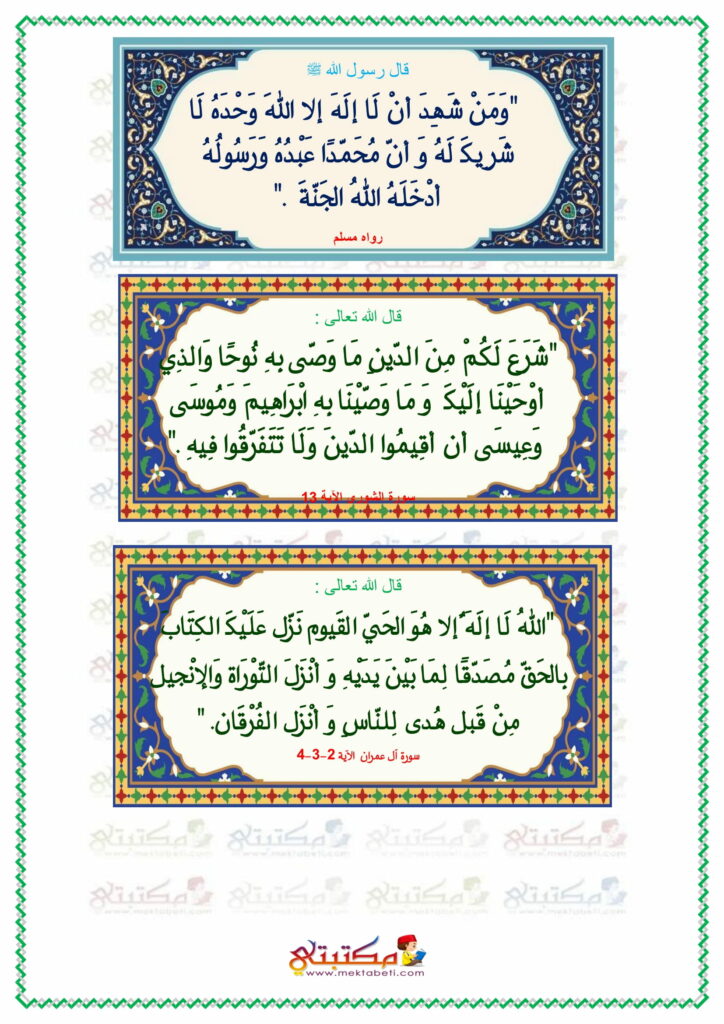 قال رسول الله ﷺ
"وَمَنْ شَهِدَ أنْ لَا إلَهَ إلا اللهَ وَحْدَهُ لَا
شَرِيكَ لَهُ وَ أنّ مُحَمّدًا عَبْدُهُ وَرَسُولُهُ
أدْخَلَهُ اللهُ الجَنّةَ ."
رواه مسلم
قال الله تعالى :
"شَرَعَ لَكُمْ مِنَ الدّينِ مَا وَصّى بِهِ نُوحًا وَالذِي
أوْحَيْنَا إلَيْكَ وَ مَا وَصّيْنَا بِهِ ابْرَاهِيمَ وَمُوسَى
وَعِيسَى أن أقِيمُوا الدّينَ وَلَا تَتَفَرّقُوا فِيهِ ."
سورة الشورى الآية 13
قال الله تعالى :
"اللهُ لَا إلَهَ إلا هُوَ الحَيّ القَيوم نَزّل عَلَيْكَ الكِتَاب
بالحَقّ مُصَدّقًا لِمَا بَيْنَ يَدَيْهِ وَ أنْزَلَ التّوْرَاة وَالإنْجيل
مِنْ قَبل هُدى لِلنّاسِ وَ أنْزَل الفُرْقَان. "
سورة آل عمران الآية 2–3–4
مكتبتي
www.mektabeti.com